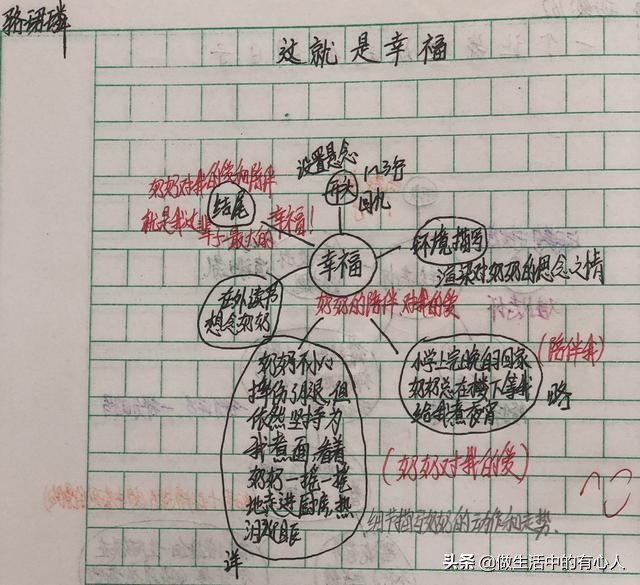 骆珊璘
这就是幸福
设置悬念
开头
2~3行
回忆
奶奶对我的爱和陪伴
就是我这辈子最大的幸福！
结尾
环境描写
渲染对奶奶的思念之情
幸福
奶奶的陪伴，对我的爱
在外读书
想念奶奶
奶奶不小心
摔伤了腿，但
依然坚持为
我煮面，看着
奶奶一摇一摇
地走进厨房，热
泪
详
小学上完晚自回家
奶奶总在楼下等我
给我煮夜宵
(陪伴我)
略
(奶奶对我的爱)
细节描写奶奶的动作和走势
头条 @做生活中的有心人